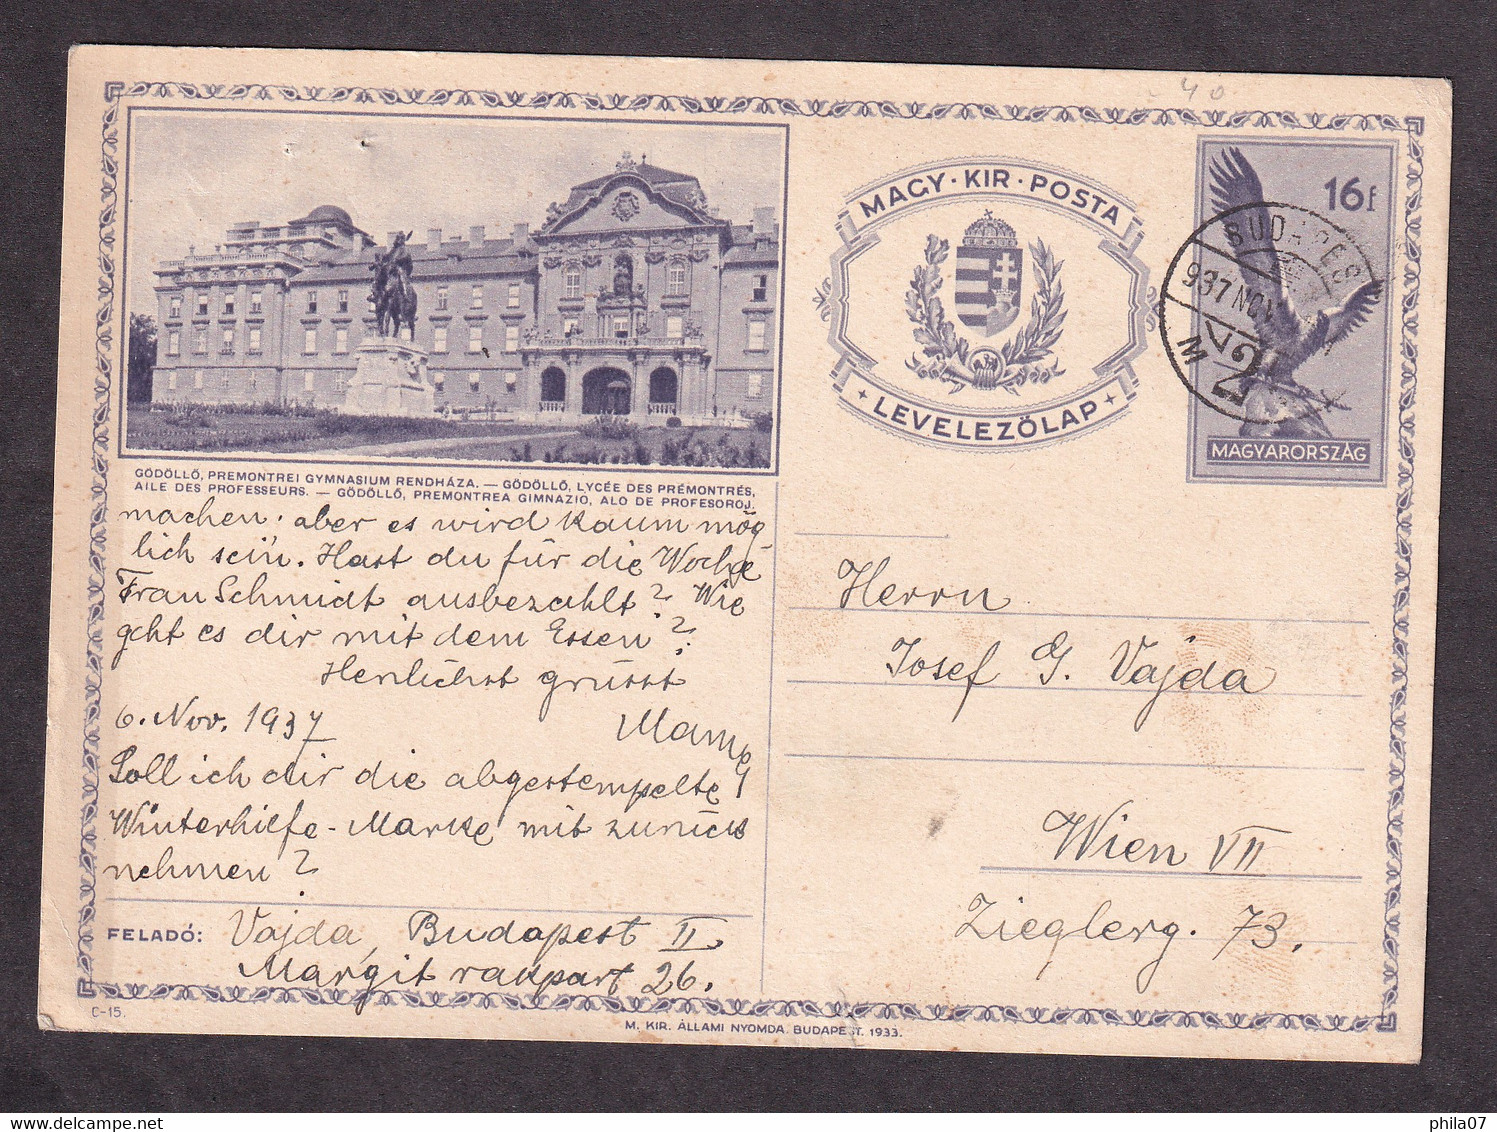 40
MAGY · KIR · POSTA
LEVELEZŐLAP
16f
BUDAPEST
937 NOV
M
V2
MAGYARORSZÁG
GÖDÖLLŐ, PREMONTREI GYMNASIUM RENDHÁZA. — GÖDÖLLŐ, LYCÉE DES PRÉMONTRÉS,
AILE DES PROFESSEURS. — GÖDÖLLŐ, PREMONTREA GIMNAZIO, ALO DE PROFESOROJ.
machen. aber es wird kaum mög
lich sein. Hast du für die Woche
Frau Schmidt ausbezahlt? Wie
geht es dir mit dem Essen?
Herzlichst grüsst
6. Nov. 1937 Mama
Soll ich dir die abgestempelte
Winterhilfe-Marke mit zurück
nehmen?
FELADÓ: Vajda, Budapest II
Margit rakpart 26.
Herrn
Josef G. Vajda
Wien VII
Zieglerg. 73.
C-15.
M. KIR. ÁLLAMI NYOMDA. BUDAPEST. 1933.
phila07